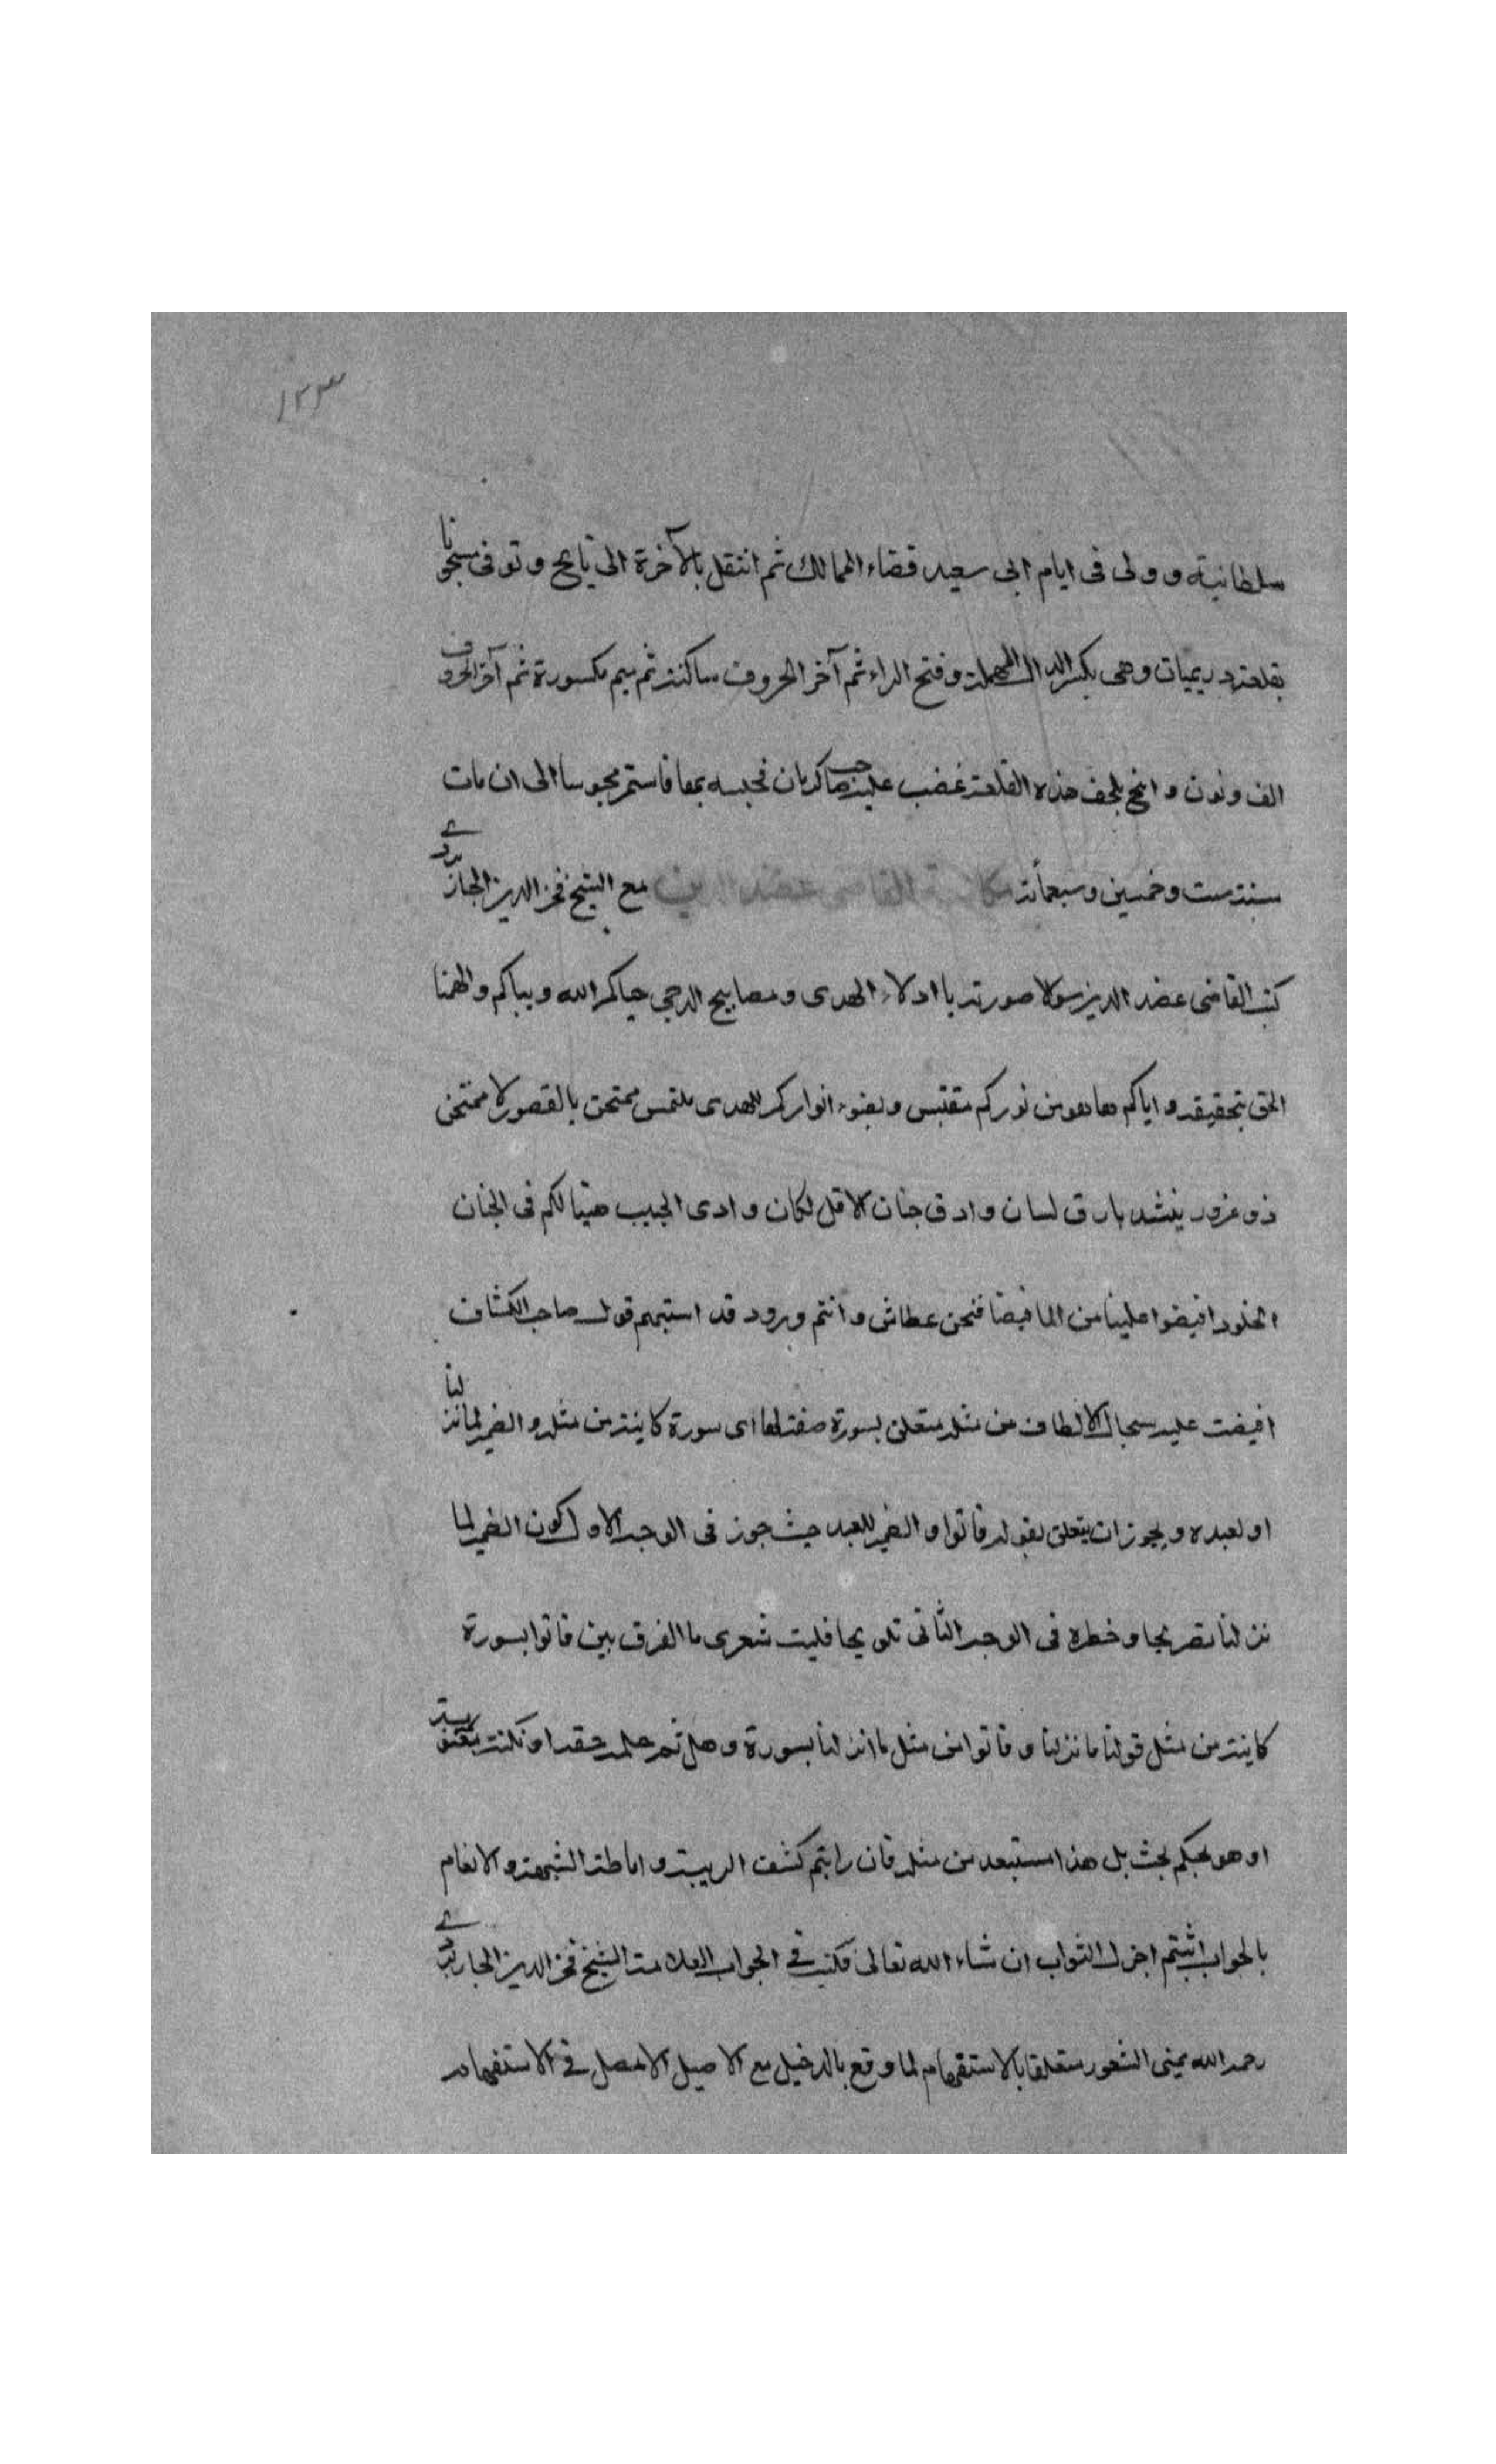 ١٢٣
سلطانية وولى فى ايام ابى سعيد قضاء الممالك ثم انتقل بالآخرة الى ايج وتوفى مسجونا
بقلعة دريميان وهى بكسر الدال المهملة وفتح الراء ثم آخر الحروف ساكنة ثم ميم مكسورة ثم آخر الحروف
الف ونون وايج بلحف هذه القلعة غضب عليه صاحب كرمان فحبسه بها فاستمر محبوسا الى ان مات
سنة ست وخمسين وسبعمائة مكاتبة القاضى عضد الدين مع الشيخ فخر الدين الجاربردى
كتب القاضى عضد الدين سولا صورته يا ادلاء الهدى ومصابيح الدجى حياكم الله وبياكم والهمنا
الحق بتحقيقه واياكم ها هو من نوركم مقتبس وبضوء انواركم للهدى ملتمس ممتحن بالقصور لا ممتحن
ذو غرور ينشد بارق لسان وادق جنان الا قل لسكان وادى الحبيب هنيا لكم فى الجنان
الخلود افيضوا علينا من الما فيضا فنحن عطاش وانتم ورود قد استبهم قول صاحب الكشاف
افيضت عليه سجال الالطاف من مثله متعلق بسورة صفة لها اى سورة كاينة من مثله والضمير لما نزلنا
او لعبده ويجوز ان يتعلق بقوله فاتوا والضمير للعبد حيث جوز فى الوجه الاول كون الضمير لما
نزلنا تصريحا وخطره فى الوجه الثانى تلويحا فليت شعرى ما الفرق بين فاتوا بسورة
كاينة من مثل قولنا ما نزلنا وفاتوا من مثل ما نزلنا بسورة وهل ثم حكمة خفية او نكتة معنوية
او هو تحكم بحت بل هذا مستبعد من مثله فان رايتم كشف الريبة واماطة الشبهة والانعام
بالجواب اثبتم اجزل الثواب ان شاء الله تعالى فكتب فى الجواب العلامة الشيخ فخر الدين الجاربردى
رحمه الله يمنى الشعور متعلقا بالاستفهام لما وقع بالدخيل مع الاصيل الامصل فى الاستفهام